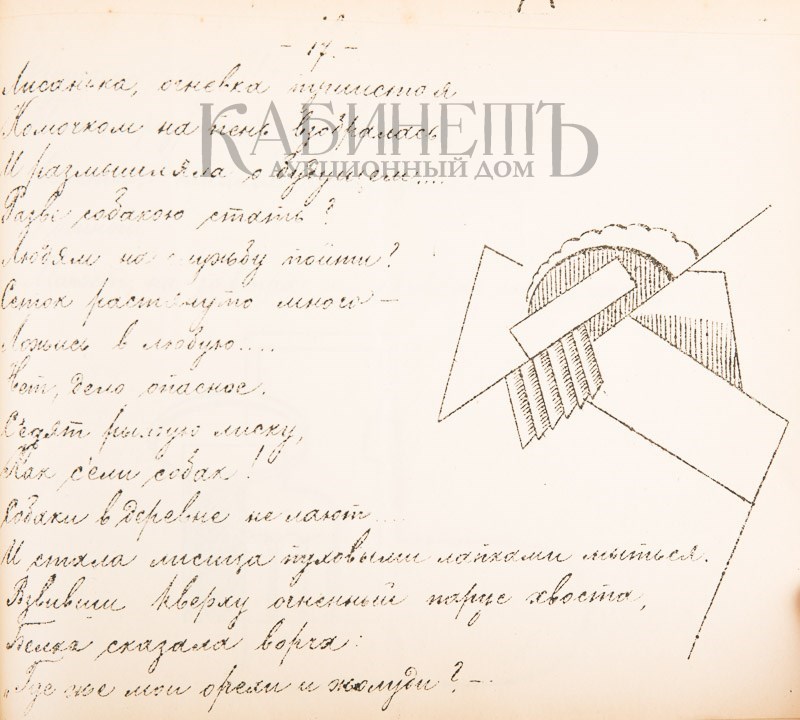 - 17. -
КАБИНЕТЪ
АУКЦИОННЫЙ ДОМ
Лисанька, огневка пушистая
Комочком на пень взобралась
И размышляла о будущем....
Разве собакою стать?
Людям на службу пойти?
Сеток растянуто много —
Ложись в любую....
Нет, дело опасное.
С'едят рыжую лиску,
Как с'ели собак!
Собаки в деревне не лают...
И стала лисица пуховыми лапками мыться.
Взвивши кверху огненный парус хвоста,
Белка сказала ворча:
"Где же мои орехи и жолуди? —